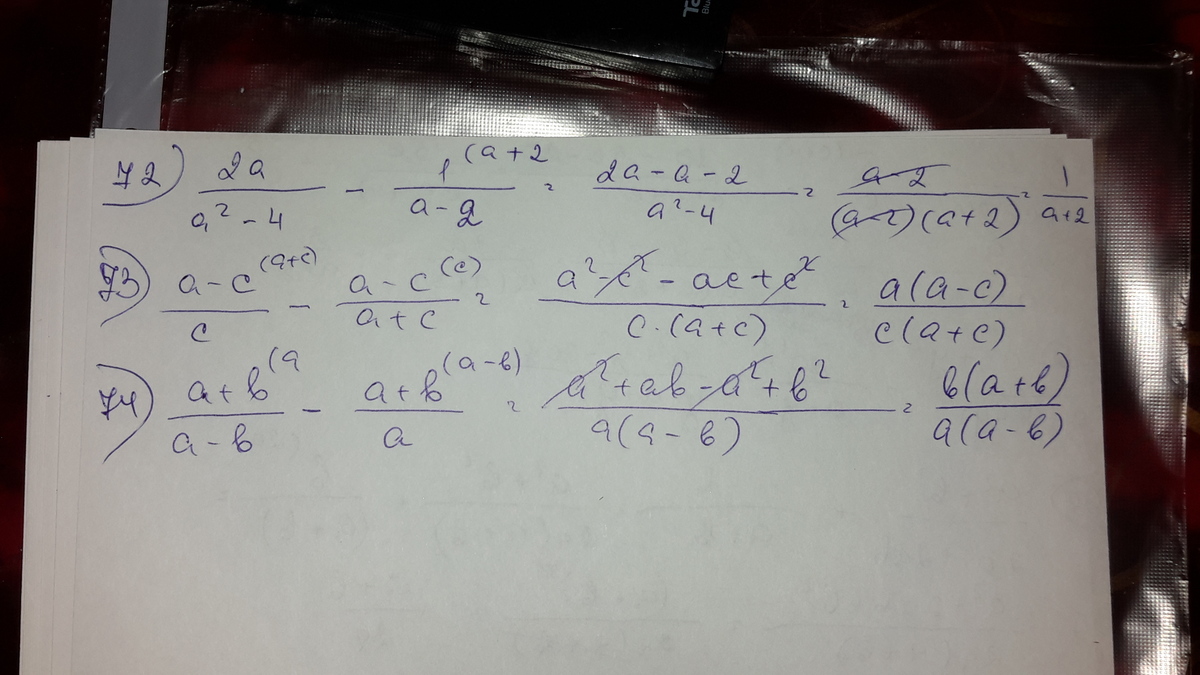 Ta
Blu
72) 2a/(a² - 4) - 1^(a+2/(a-2) = (2a-a-2)/(a²-4) = (a-2)/((a-2)(a+2)) = 1/(a+2)
73) a-c^(a+c)/c - a-c^(c)/(a+c) = (a²-c²-ac+c²)/(c·(a+c)) = a(a-c)/(c(a+c))
74) a+b^(a/(a-b) - a+b^(a-b)/a = (a²+ab-a²+b²)/(a(a-b)) = b(a+b)/(a(a-b))